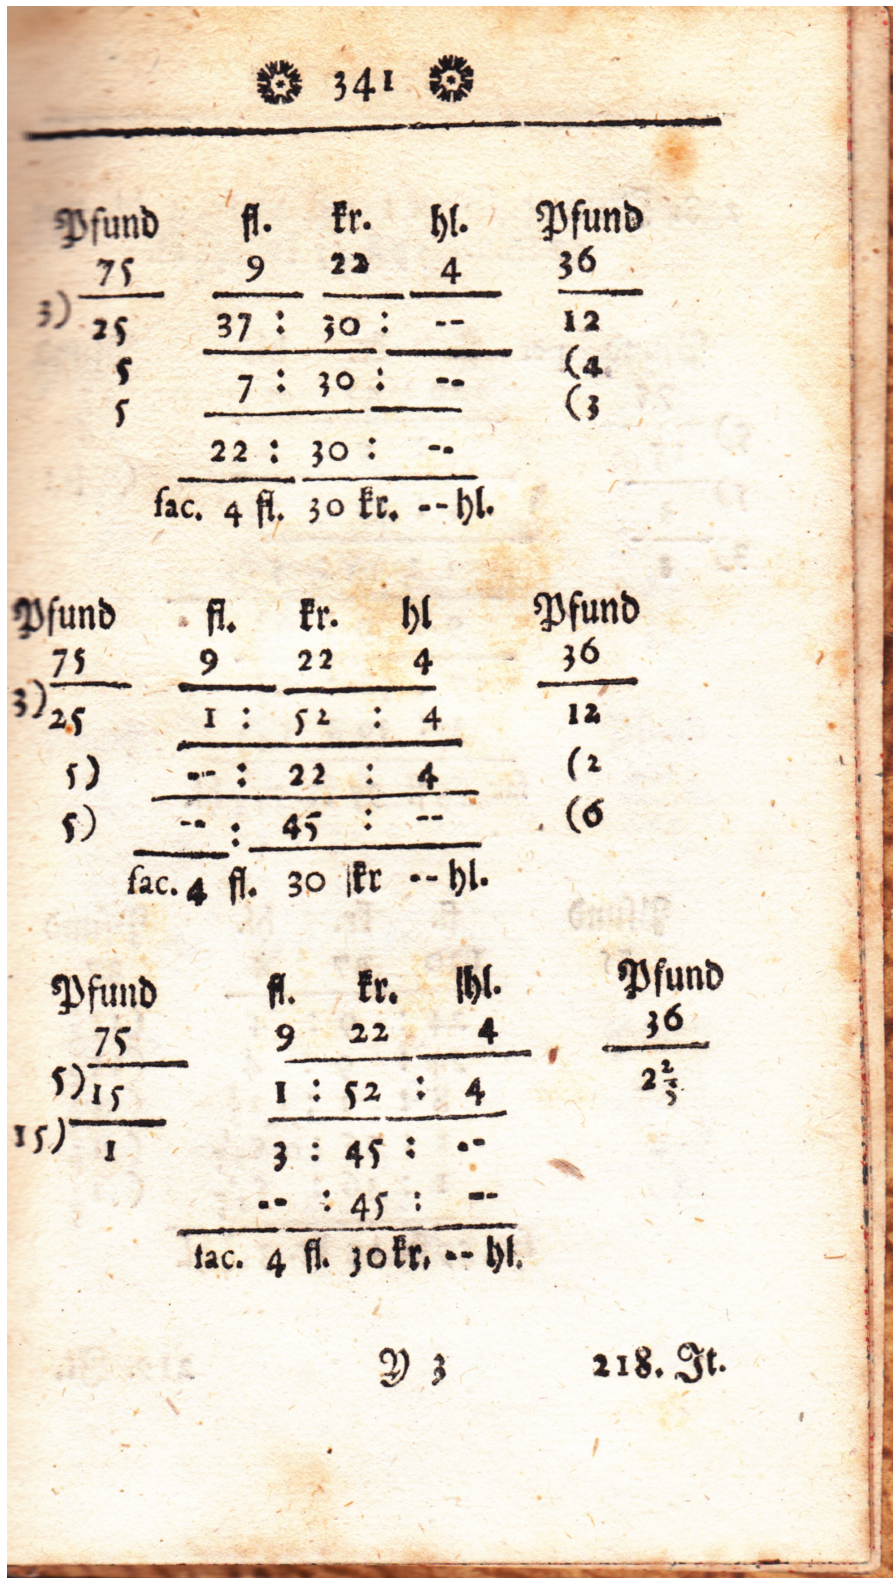 341
Pfund fl. kr. hl. Pfund
75 9 22 4 36
3) 25 37 : 30 : -- 12
5 7 : 30 : -- (4
5 (3
22 : 30 : --
fac. 4 fl. 30 kr. -- hl.
Pfund fl. kr. hl Pfund
75 9 22 4 36
3) 25 1 : 52 : 4 12
5) -- : 22 : 4 (2
5) -- : 45 : -- (6
fac. 4 fl. 30 kr -- hl.
Pfund fl. kr. hl. Pfund
75 9 22 4 36
5) 15 1 : 52 : 4 2 2/5
15) 1 3 : 45 : --
-- : 45 : --
fac. 4 fl. 30 kr. -- hl.
Y 3 218. It.